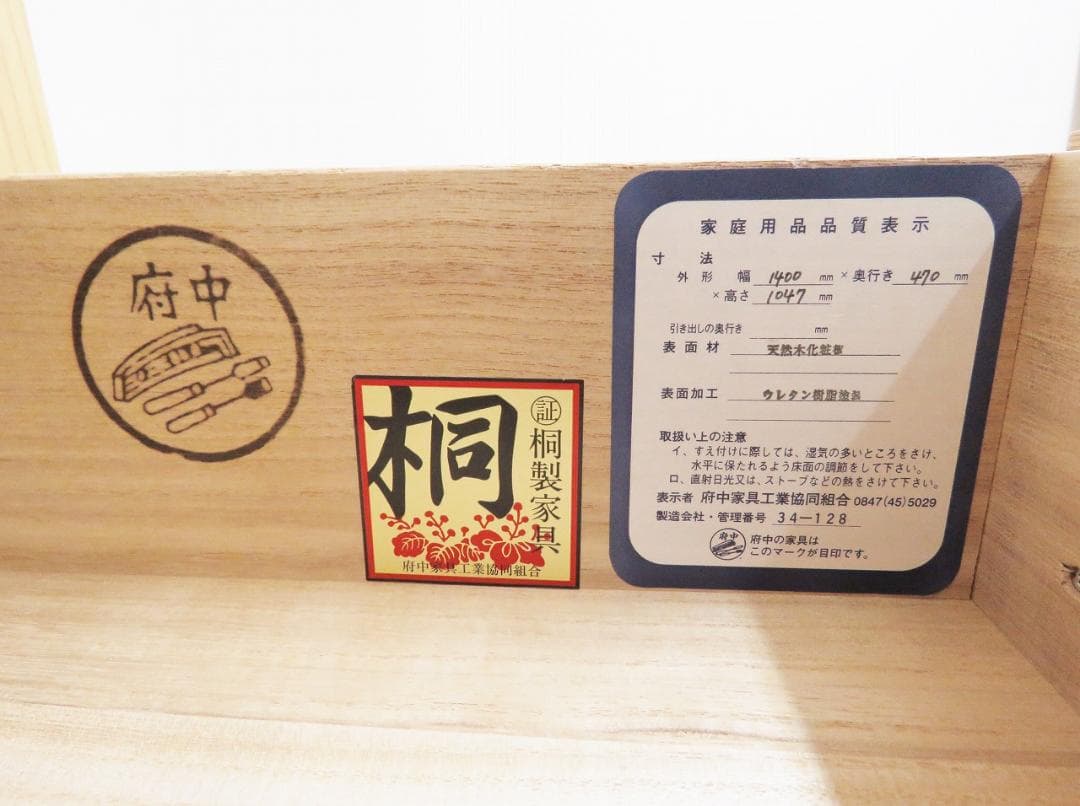 府中
桐
証
桐製家具
府中家具工業協同組合
家庭用品品質表示
寸法
外形 幅 1400 mm × 奥行き 470 mm
× 高さ 1047 mm
引き出しの奥行き mm
表面材 天然木化粧板
表面加工 ウレタン樹脂塗装
取扱い上の注意
イ、すえ付けに際しては、湿気の多いところをさけ、
水平に保たれるよう床面の調節をして下さい。
ロ、直射日光又は、ストーブなどの熱をさけて下さい。
表示者 府中家具工業協同組合 0847(45)5029
製造会社・管理番号 34-128
府中
府中の家具は
このマークが目印です。